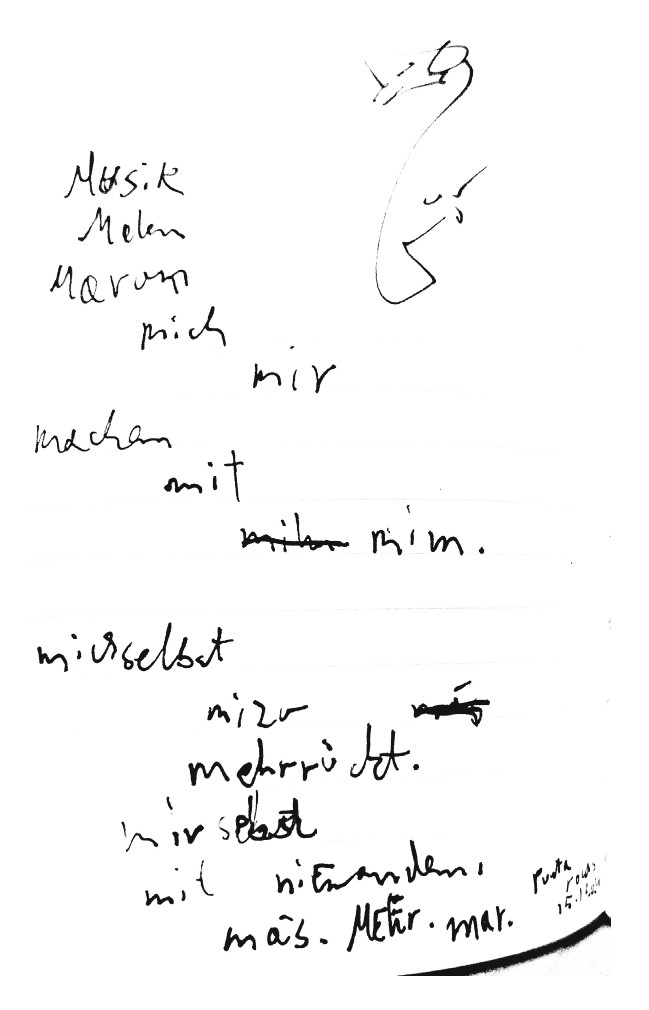 Musik
Malen
Warum
mich
mir
machen
mit
mim.
michselbst
mizu
mehrrückt.
mir selbst
mit niemandem.
más. MEHr. mar.
Punta